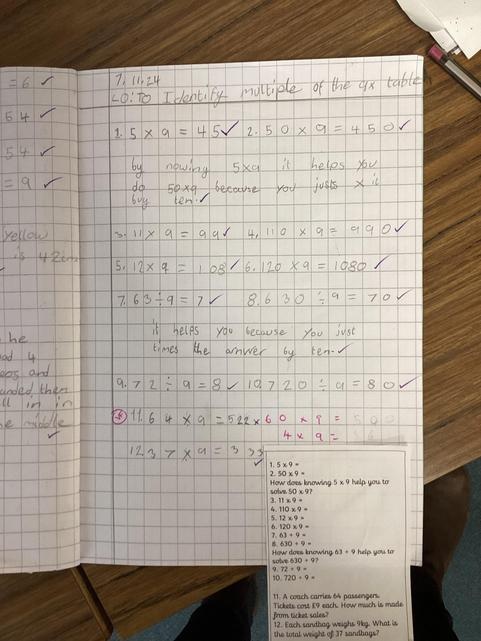 = 6 ✓
54 ✓
54 ✓
= 9 ✓
yellow
is 42cm
he
and
in in
middle
7.11.24
LO: TO Identify multiple of the 9x table
1. 5 x 9 = 45 ✓ 2. 50 x 9 = 450 ✓
by nowing 5x9 it helps you
do 50x9 because you justs x it
buy ten. ✓
3. 11 x 9 = 99 ✓ 4. 110 x 9 = 990 ✓
5. 12 x 9 = 108 ✓ 6. 120 x 9 = 1080 ✓
7. 63 ÷ 9 = 7 ✓ 8. 630 ÷ 9 = 70 ✓
it helps you because you just
times the answer by ten. ✓
9. 72 ÷ 9 = 8 ✓ 10. 720 ÷ 9 = 80 ✓
11. 64 x 9 = 522 x 60 x 9 =
4 x 9 =
12. 37 x 9 = 333 ✓
1. 5 x 9 =
2. 50 x 9 =
How does knowing 5 x 9 help you to
solve 50 x 9?
3. 11 x 9 =
4. 110 x 9 =
5. 12 x 9 =
6. 120 x 9 =
7. 63 ÷ 9 =
8. 630 ÷ 9 =
How does knowing 63 ÷ 9 help you to
solve 630 ÷ 9?
9. 72 ÷ 9 =
10. 720 ÷ 9 =
11. A coach carries 64 passengers.
Tickets cost £9 each. How much is made
from ticket sales?
12. Each sandbag weighs 9kg. What is
the total weight of 37 sandbags?